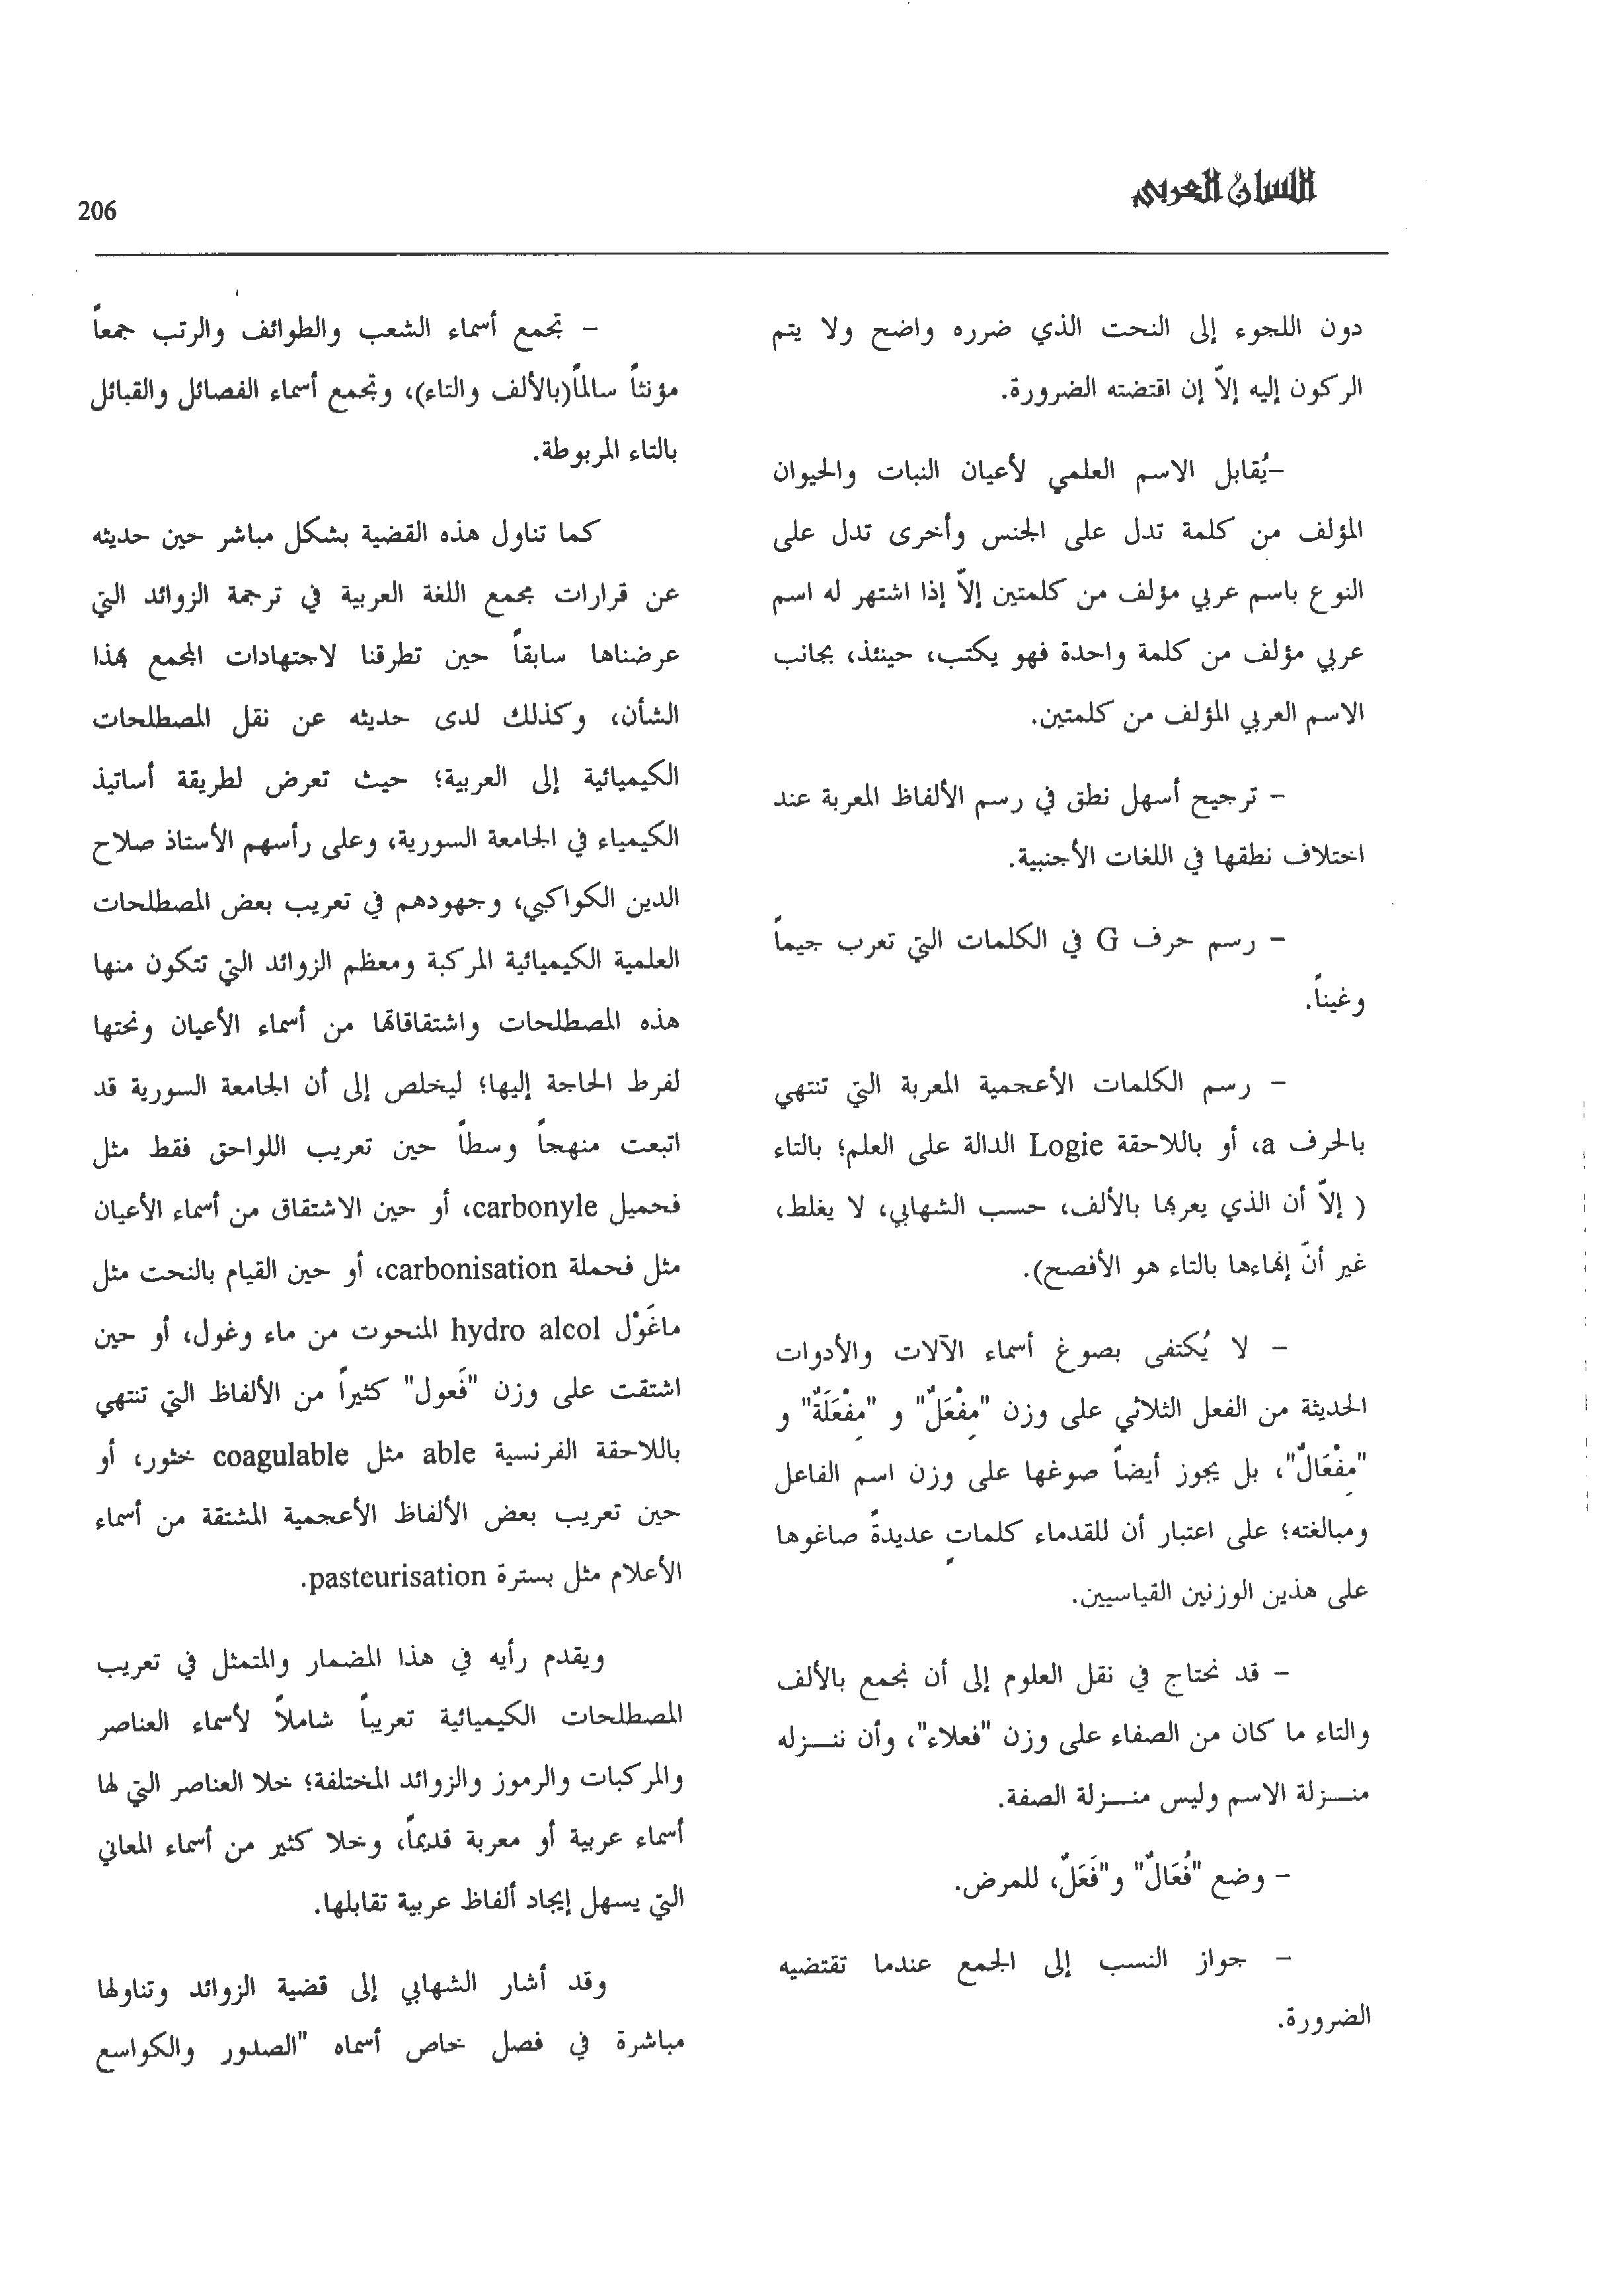 اللسان العربي
206
دون اللجوء إلى النحت الذي ضرره واضح ولا يتم
الركون إليه إلاّ إن اقتضته الضرورة.
-يُقابل الاسم العلمي لأعيان النبات والحيوان
المؤلف من كلمة تدل على الجنس وأخرى تدل على
النوع باسم عربي مؤلف من كلمتين إلاّ إذا اشتهر له اسم
عربي مؤلف من كلمة واحدة فهو يكتب، حينئذ، بجانب
الاسم العربي المؤلف من كلمتين.
- ترجيح أسهل نطق في رسم الألفاظ المعربة عند
اختلاف نطقها في اللغات الأجنبية.
- رسم حرف G في الكلمات التي تعرب جيماً
وغيناً.
- رسم الكلمات الأعجمية المعربة التي تنتهي
بالحرف a، أو باللاحقة Logie الدالة على العلم؛ بالتاء
( إلاّ أن الذي يعربها بالألف، حسب الشهابي، لا يغلط،
غير أنّ إنهاءها بالتاء هو الأفصح).
- لا يُكتفى بصوغ أسماء الآلات والأدوات
الحديثة من الفعل الثلاثي على وزن "مِفْعَلٌ" و "مِفْعَلَةٌ" و
"مِفْعَالٌ"، بل يجوز أيضاً صوغها على وزن اسم الفاعل
ومبالغته؛ على اعتبار أن للقدماء كلماتٍ عديدةً صاغوها
على هذين الوزنين القياسيين.
- قد نحتاج في نقل العلوم إلى أن نجمع بالألف
والتاء ما كان من الصفاء على وزن "فعلاء"، وأن ننـــزله
منـــزلة الاسم وليس منـــزلة الصفة.
- وضع "فُعَالٌ" و"فَعَلٌ، للمرض.
- جواز النسب إلى الجمع عندما تقتضيه
الضرورة.
- تجمع أسماء الشعب والطوائف والرتب جمعاً
مؤنثاً سالماً(بالألف والتاء)، وتجمع أسماء الفصائل والقبائل
بالتاء المربوطة.
كما تناول هذه القضية بشكل مباشر حين حديثه
عن قرارات مجمع اللغة العربية في ترجمة الزوائد التي
عرضناها سابقاً حين تطرقنا لاجتهادات المجمع بهذا
الشأن، وكذلك لدى حديثه عن نقل المصطلحات
الكيميائية إلى العربية؛ حيث تعرض لطريقة أساتيذ
الكيمياء في الجامعة السورية، وعلى رأسهم الأستاذ صلاح
الدين الكواكبي، وجهودهم في تعريب بعض المصطلحات
العلمية الكيميائية المركبة ومعظم الزوائد التي تتكون منها
هذه المصطلحات واشتقاقاتها من أسماء الأعيان ونحتها
لفرط الحاجة إليها؛ ليخلص إلى أن الجامعة السورية قد
اتبعت منهجاً وسطاً حين تعريب اللواحق فقط مثل
فحميل carbonyle، أو حين الاشتقاق من أسماء الأعيان
مثل فحملة carbonisation، أو حين القيام بالنحت مثل
ماغَوْل hydro alcol المنحوت من ماء وغول، أو حين
اشتقت على وزن "فَعول" كثيراً من الألفاظ التي تنتهي
باللاحقة الفرنسية able مثل coagulable خثور، أو
حين تعريب بعض الألفاظ الأعجمية المشتقة من أسماء
الأعلام مثل بسترة pasteurisation.
ويقدم رأيه في هذا المضمار والمتمثل في تعريب
المصطلحات الكيميائية تعريباً شاملاً لأسماء العناصر
والمركبات والرموز والزوائد المختلفة؛ خلا العناصر التي لها
أسماء عربية أو معربة قديماً، وخلا كثير من أسماء المعاني
التي يسهل إيجاد ألفاظ عربية تقابلها.
وقد أشار الشهابي إلى قضية الزوائد وتناولها
مباشرة في فصل خاص أسماه "الصدور والكواسع